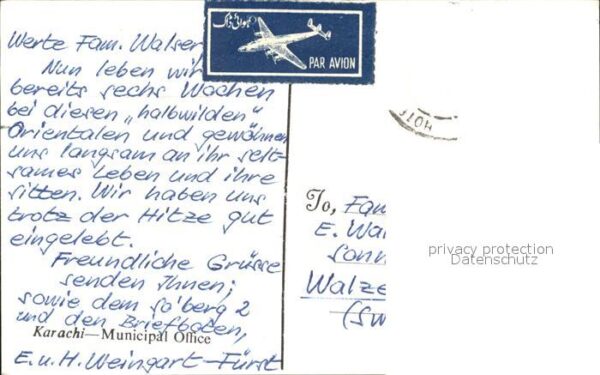 Werte Fam. Walser
Nun leben wir
bereits sechs Wochen
bei diesen „halbwilden"
Orientalen und gewöhnen
uns langsam an ihr selt-
sames Leben und ihre
sitten. Wir haben uns
trotz der Hitze gut
eingelebt.
Freundliche Grüsse
senden Ihnen;
sowie dem so'berg 2
und den Briefboten,
Karachi—Municipal Office
E. u. H. Weingart-Fürst
ہوائی ڈاک
PAR AVION
To, Fam
E. Wal
Sonn
Walze
(Sw
privacy protection
Datenschutz